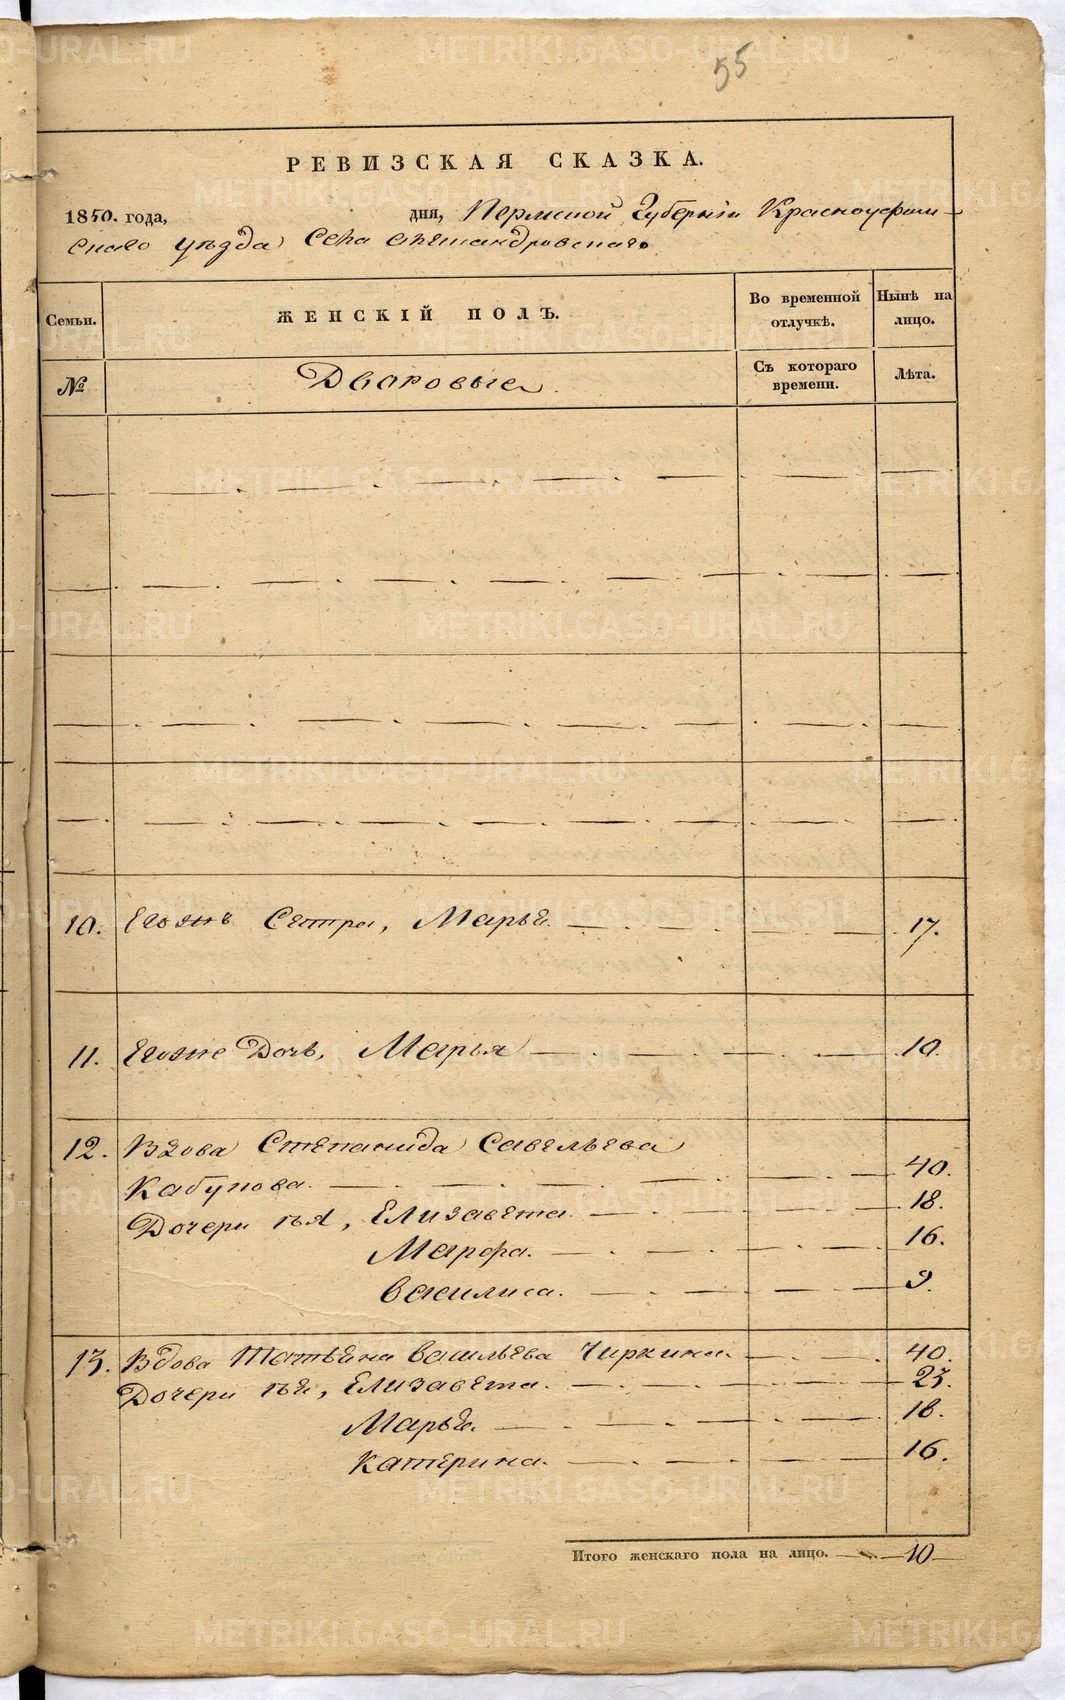 55
РЕВИЗСКАЯ СКАЗКА.
1850. года, дня, Пермской Губернiи Красноуфим-
скаго уѣзда Села Александровскаго
Семьи. ЖЕНСКIЙ ПОЛЪ. Во временной отлучкѣ. Нынѣ на лицо.
№ Дворовые Съ котораго времени. Лѣта.
10. Егожъ Сестра, Марья. 17.
11. Егоже Дочь, Марья 10.
12. Вдова Степанида Савельева
Кабунова. 40.
Дочери ѣя, Елизавета 18.
Марфа. 16.
Василиса. 9.
13. Вдова Татьяна Васильева Чиркина 40.
Дочери ѣя, Елизавета. 23.
Марья. 18.
Катерина. 16.
Итого женскаго пола на лицо. 10
METRIKI.GASO-URAL.RU